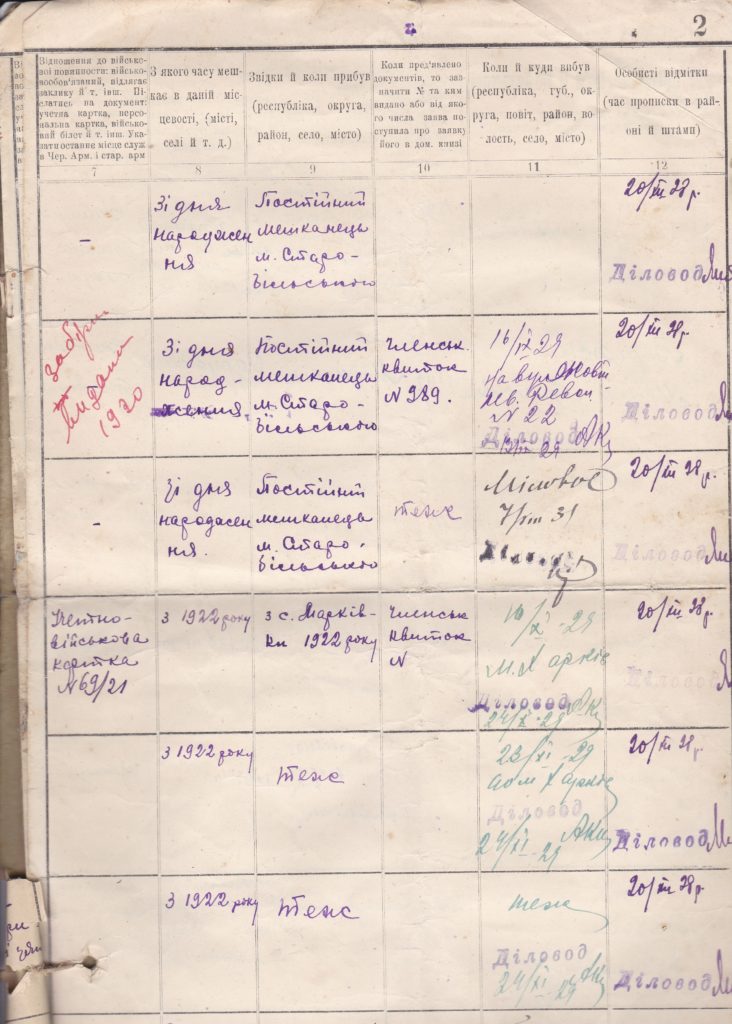 2
Відношення до військо-
вої повинности: військо-
вообов'язаний, підлягає
заклику й т. инш. Пі-
слатись на документ:
учетна картка, персо-
нальна картка, військо-
вий білет й т. инш. Ука-
зати останнє місце служ.
в Чер. Арм. і стар. арм
З якого часу меш-
кає в даній міс-
цевості, (місті,
селі й т. д.)
Звідки й коли прибув
(республіка, округа,
район, село, місто)
Коли пред'явлено
документів, то заз-
начити № та ким
видано або від яко-
го числа заява по-
ступила про заявку
його в дом. книзі
Коли й куди вибув
(республіка, губ., ок-
руга, повіт, район, во-
лость, село, місто)
Особисті відмітки
(час прописки в рай-
оні й штамп)
7
8
9
10
11
12
-
Зі дня
народжен
ня
Постійний
мешканець
м. Старо-
більського
20/III 28 р.
Діловод
видали
1930
Зі дня
народ-
ження
Постійний
мешканець
м. Старо-
більського
Членськ.
квиток
N 989.
16/IX 29
на вул. Жовт
рев.
N 22
Діловод
20/III 28 р.
Діловод
-
Зі дня
народжен
ня.
Постійний
мешканець
м. Старо-
більського
теж
Мілове
7/III 31
Діловод
20/III 28 р.
Діловод
військова
картка
N 69/21
з 1922 року
з с. Марків-
ки 1922 року
Членськ
квиток
N
м. Харків
Діловод
24/XI-29
20/III 28 р.
Діловод
з 1922 року
Теж
23/XI-29
Діловод
24/XI-29
20/III 28 р.
Діловод
з 1922 року
Теж
теж
Діловод
24/XI-29
20/III 28 р.
Діловод